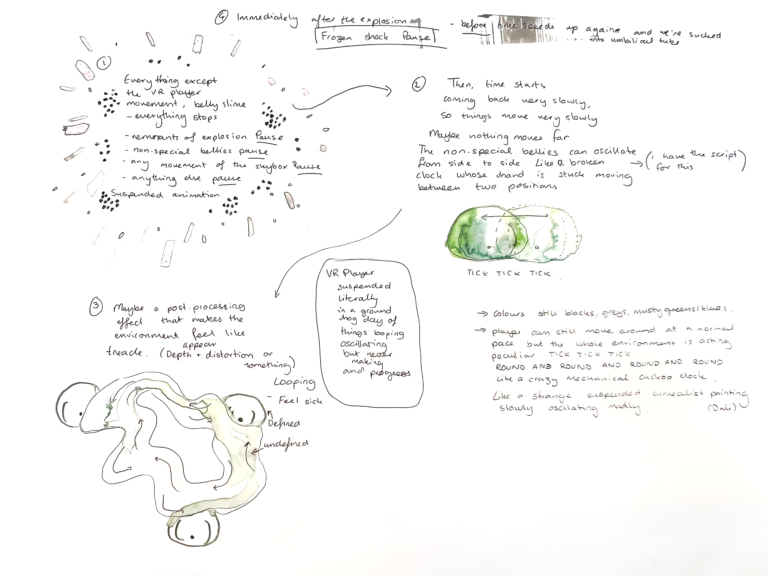 ④ Immediately after the explosion
Frozen shock Pause
- before time speeds up again and we're sucked
into umbilical tube
①
Everything except
the VR player
movement, belly slime
- everything stops
- remnants of explosion Pause
- non-special bellies pause
- any movement of the skybox Pause
- anything else pause
Suspended animation
② Then, time starts
coming back very slowly,
so things move very slowly
Maybe nothing moves far
The non-special bellies can oscillate
from side to side. Like a broken
clock whose hand is stuck moving
between two positions
→ (I have the script
for this)
TICK TICK TICK
③ Maybe a post-processing
effect that makes the
environment feel like
appear
treacle. (Depth + distortion or
something)
VR Player
suspended
literally
in a ground
hog day of
things looping
oscillating
but never
making
and progress
Looping
- Feel sick
Defined
undefined
→ colours still blacks, greys, musty greens/blues.
→ player can still move around at a normal
pace but the whole environment is acting
peculiar TICK TICK TICK
ROUND AND ROUND AND ROUND AND ROUND
Like a crazy mechanical cuckoo clock.
Like a strange suspended surrealist painting
slowly oscilating madly. (Dali)